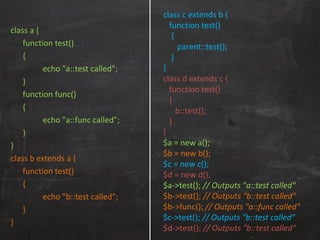 class a {
function test()
{
echo "a::test called";
}
function func()
{
echo "a::func called";
}
}
class b extends a {
function test()
{
echo "b::test called";
}
}
class c extends b {
function test()
{
parent::test();
}
}
class d extends c {
function test()
{
b::test();
}
}
$a = new a();
$b = new b();
$c = new c();
$d = new d();
$a->test(); // Outputs "a::test called"
$b->test(); // Outputs "b::test called"
$b->func(); // Outputs "a::func called"
$c->test(); // Outputs "b::test called"
$d->test(); // Outputs "b::test called"